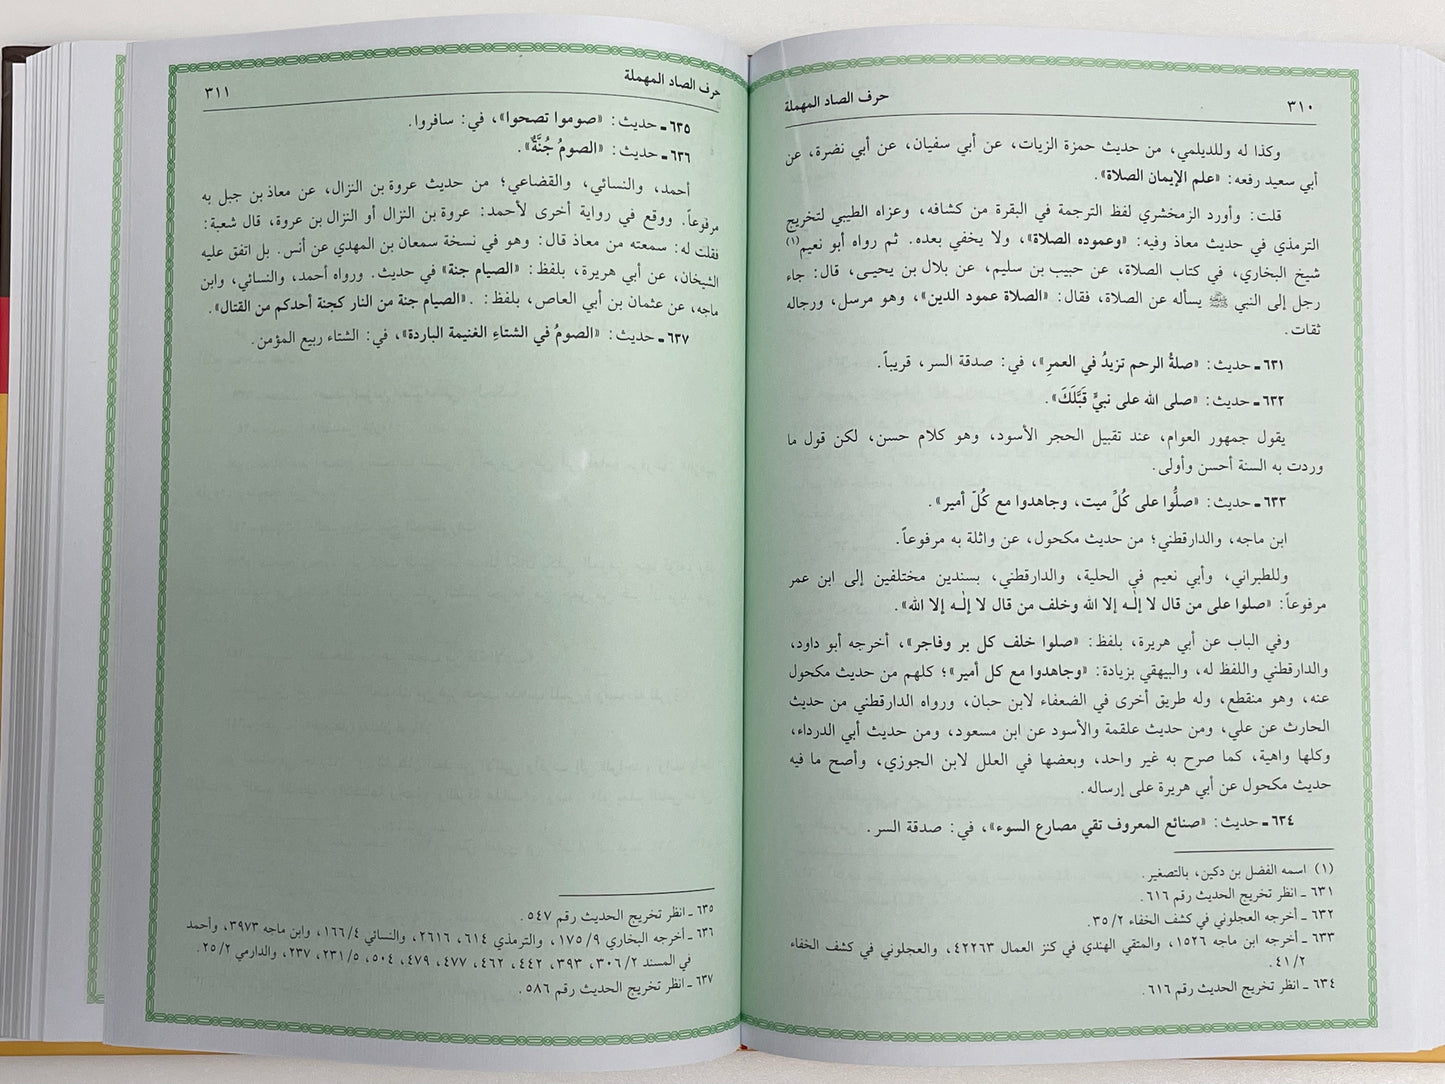 ٣١٠
حرف الصاد المهملة
وكذا له وللديلمي، من حديث حمزة الزيات، عن أبي سفيان، عن أبي نضرة، عن
أبي سعيد رفعه: «علم الإيمان الصلاة».
قلت: وأورد الزمخشري لفظ الترجمة في البقرة من كشافه، وعزاه الطيبي لتخريج
الترمذي في حديث معاذ وفيه: «وعموده الصلاة»، ولا يخفي بعده. ثم رواه أبو نعيم(١)
شيخ البخاري، في كتاب الصلاة، عن حبيب بن سليم، عن بلال بن يحيـى، قال: جاء
رجل إلى النبي ﷺ يسأله عن الصلاة، فقال: «الصلاة عمود الدين»، وهو مرسل، ورجاله
ثقات.
٦٣١ ـ حديث: «صلةُ الرحم تزيدُ في العمرِ»، في: صدقة السر، قريباً.
٦٣٢ ـ حديث: «صلى الله على نبيٍّ قَبَّلَكَ».
يقول جمهور العوام، عند تقبيل الحجر الأسود، وهو كلام حسن، لكن قول ما
وردت به السنة أحسن وأولى.
٦٣٣ ـ حديث: «صلُّوا على كُلِّ ميت، وجاهدوا مع كُلّ أمير».
ابن ماجه، والدارقطني؛ من حديث مكحول، عن واثلة به مرفوعاً.
وللطبراني، وأبي نعيم في الحلية، والدارقطني، بسندين مختلفين إلى ابن عمر
مرفوعاً: «صلوا على من قال لا إلٰـه إلا الله وخلف من قال لا إلٰـه إلا الله».
وفي الباب عن أبي هريرة، بلفظ: «صلوا خلف كل بر وفاجر»، أخرجه أبو داود،
والدارقطني واللفظ له، والبيهقي بزيادة: «وجاهدوا مع كل أمير»؛ كلهم من حديث مكحول
عنه، وهو منقطع، وله طريق أخرى في الضعفاء لابن حبان، ورواه الدارقطني من حديث
الحارث عن علي، ومن حديث علقمة والأسود عن ابن مسعود، ومن حديث أبي الدرداء،
وكلها واهية، كما صرح به غير واحد، وبعضها في العلل لابن الجوزي، وأصح ما فيه
حديث مكحول عن أبي هريرة على إرساله.
٦٣٤ ـ حديث: «صنائع المعروف تقي مصارع السوء»، في: صدقة السر.
(١) اسمه الفضل بن دكين، بالتصغير.
٦٣١ ـ انظر تخريج الحديث رقم ٦١٦.
٦٣٢ ـ أخرجه العجلوني في كشف الخفاء ٣٥/٢.
٦٣٣ ـ أخرجه ابن ماجه ١٥٢٦، والمتقي الهندي في كنز العمال ٤٢٢٦٣، والعجلوني في كشف الخفاء
٤١/٢.
٦٣٤ ـ انظر تخريج الحديث رقم ٦١٦.
حرف الصاد المهملة
٣١١
٦٣٥ ـ حديث: «صوموا تصحوا»، في: سافروا.
٦٣٦ ـ حديث: «الصومُ جُنَّةٌ».
أحمد، والنسائي، والقضاعي؛ من حديث عروة بن النزال، عن معاذ بن جبل به
مرفوعاً. ووقع في رواية أخرى لأحمد: عروة بن النزال أو النزال بن عروة، قال شعبة:
فقلت له: سمعته من معاذ قال: وهو في نسخة سمعان بن المهدي عن أنس. بل اتفق عليه
الشيخان، عن أبي هريرة، بلفظ: «الصيام جنة» في حديث. ورواه أحمد، والنسائي، وابن
ماجه، عن عثمان بن أبي العاص، بلفظ: .«الصيام جنة من النار كجنة أحدكم من القتال».
٦٣٧ ـ حديث: «الصومُ في الشتاءِ الغنيمة الباردة»، في: الشتاء ربيع المؤمن.
٦٣٥ ـ انظر تخريج الحديث رقم ٥٤٧.
٦٣٦ ـ أخرجه البخاري ١٧٥/٩، والترمذي ٦١٤، ٢٦١٦، والنسائي ١٦٦/٤، وابن ماجه ٣٩٧٣، وأحمد
في المسند ٣٠٦/٢، ٣٩٣، ٤٤٢، ٤٦٢، ٤٧٧، ٤٧٩، ٥٠٤، ٢٣١/٥، ٢٣٧، والدارمي ٢٥/٢.
٦٣٧ ـ انظر تخريج الحديث رقم ٥٨٦.